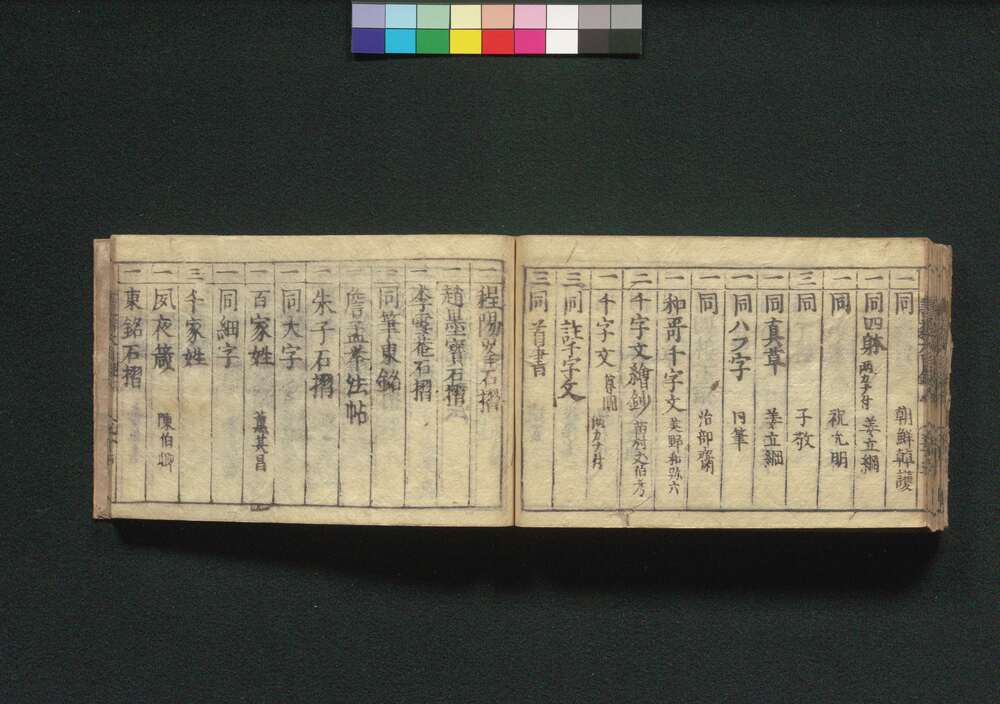 一 同 朝鮮韓護
一 同四躰 両カナ付 姜立綱
一 同 祝允明
三 同 子敬
一 同真草 姜立綱
一 同八フ字 同筆
一 同 治部齋
一 和哥千字文 美野和氶六
二 千字文繪鈔 苗村丈伯
一 千字文 両カナ付
三 同註千字文
三 同 首書
一 程陽峯石摺
一 趙墨寳石摺
一 李雪菴石摺
三 同筆東銘
一 詹孟拳法帖
一 朱子石摺
一 同大字
一 百家姓 董其昌
一 同細字
三 千家姓
一 夙夜箴 陳伯卿
一 東銘石摺